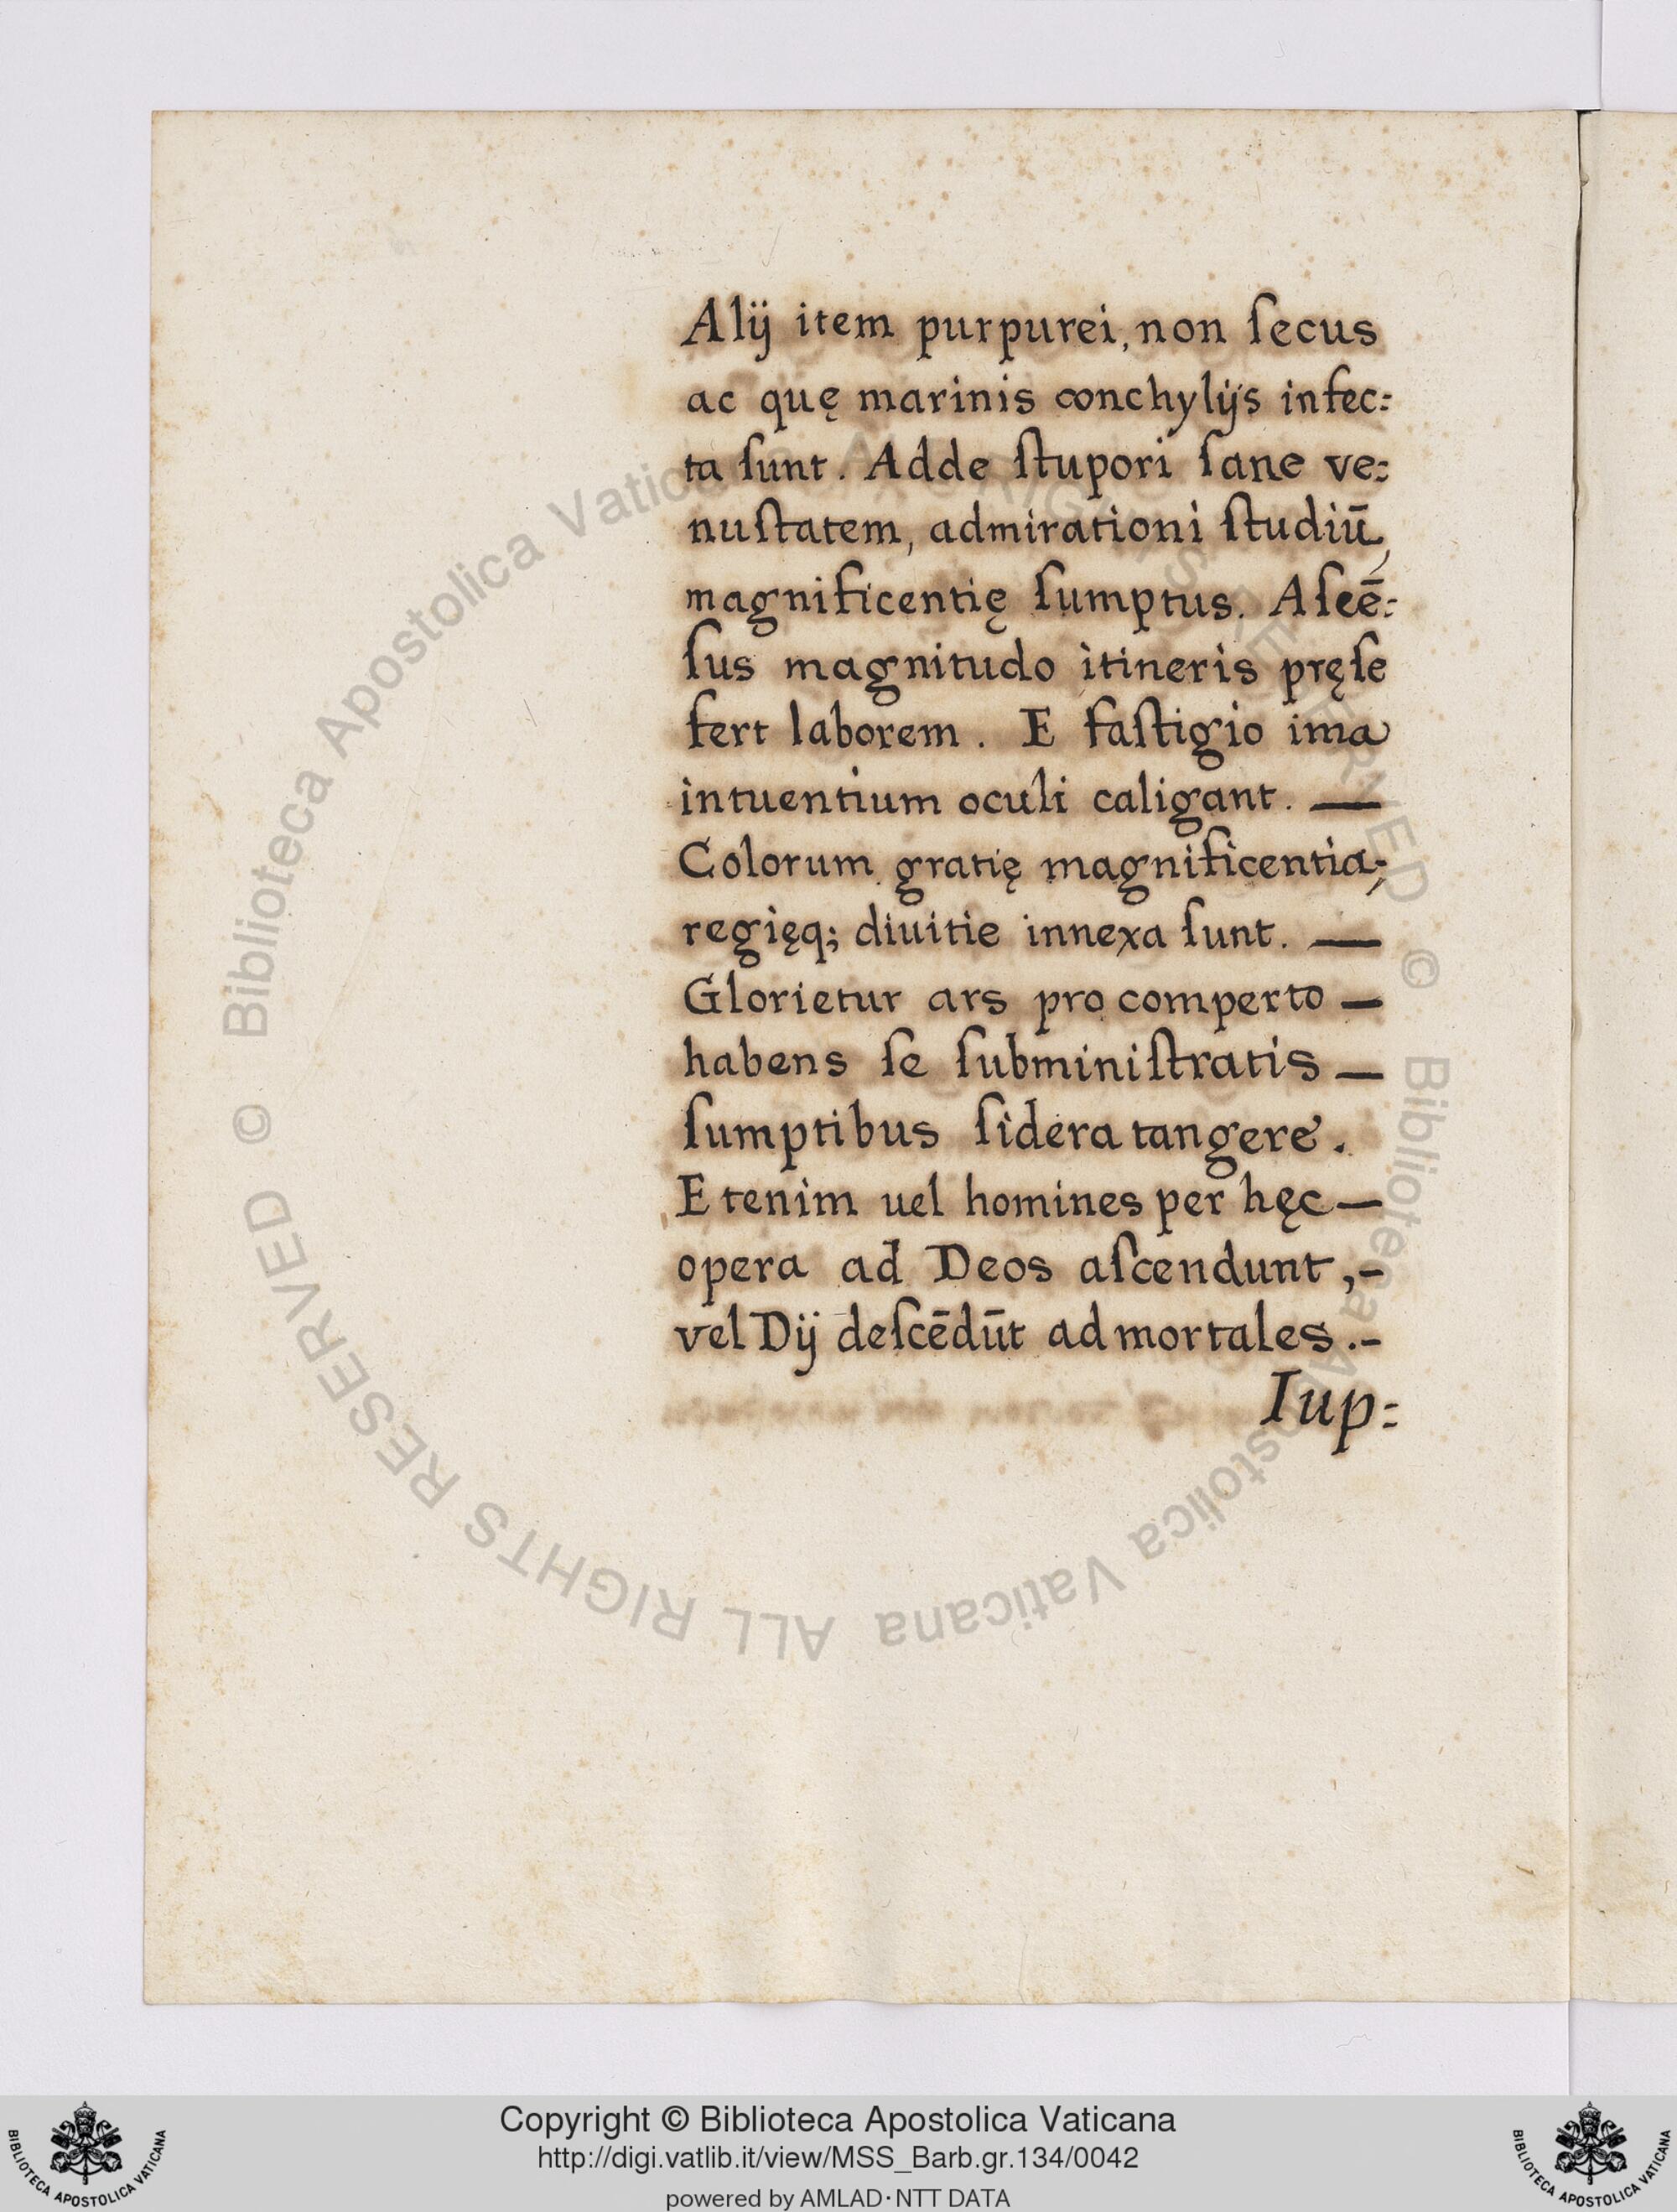 Alij item purpurei, non ſecus
ac quę marinis conchylijs infec=
ta ſunt. Adde ſtupori ſane ve=
nuſtatem, admirationi ſtudiū,
magnificentię ſumptus. Aſcē=
ſus magnitudo itineris pręſe
fert laborem. E faſtigio ima
intuentium oculi caligant. —
Colorum gratię magnificentia,
regięq; diuitie innexa ſunt. —
Glorietur ars pro comperto —
habens ſe ſubminiſtratis —
ſumptibus ſidera tangere.
Etenim uel homines per hęc —
opera ad Deos aſcendunt, -
vel Dij deſcēdūt ad mortales. -
Iup=
© Biblioteca Apostolica Vaticana ALL RIGHTS RESERVED © Biblioteca Apostolica Vaticana ALL RIGHTS RESERVED
Copyright © Biblioteca Apostolica Vaticana
http://digi.vatlib.it/view/MSS_Barb.gr.134/0042
powered by AMLAD·NTT DATA
BIBLIOTECA APOSTOLICA VATICANA
BIBLIOTECA APOSTOLICA VATICANA